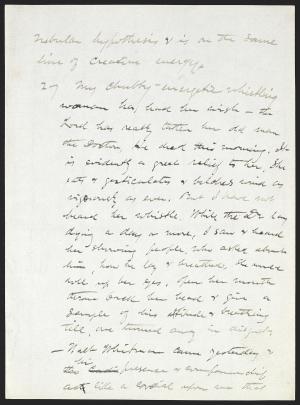 nebular hypothesis & is on the same
line of creative energy.
27 My chubby - energetic whistling
woman has had her wish - the
Lord has really taken her old man
the Doctor, he died this morning, It
is evidently a great relief to her, She
eats & gesticulates & as
vigorously as ever. But I have not
heard her whistle. While the Dr lay
dying a day or more, I saw & heard
her showing people who asked about
him, how he lay & breathed, she would
roll up her eyes, open her mouth
throw back her head & give a
sample of his attitude & breathing
till, one turned away in disgust
- Walt Whitman came yesterday &
his presence & companionship
act like a cordial upon me that